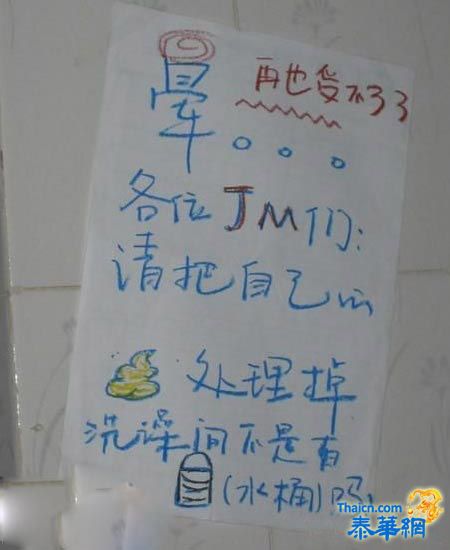 晕。。。 再也受不了了
各位JM们:
请把自己的
处理掉
洗澡间不是有
(水桶)吗
Thaicn.com
泰華網